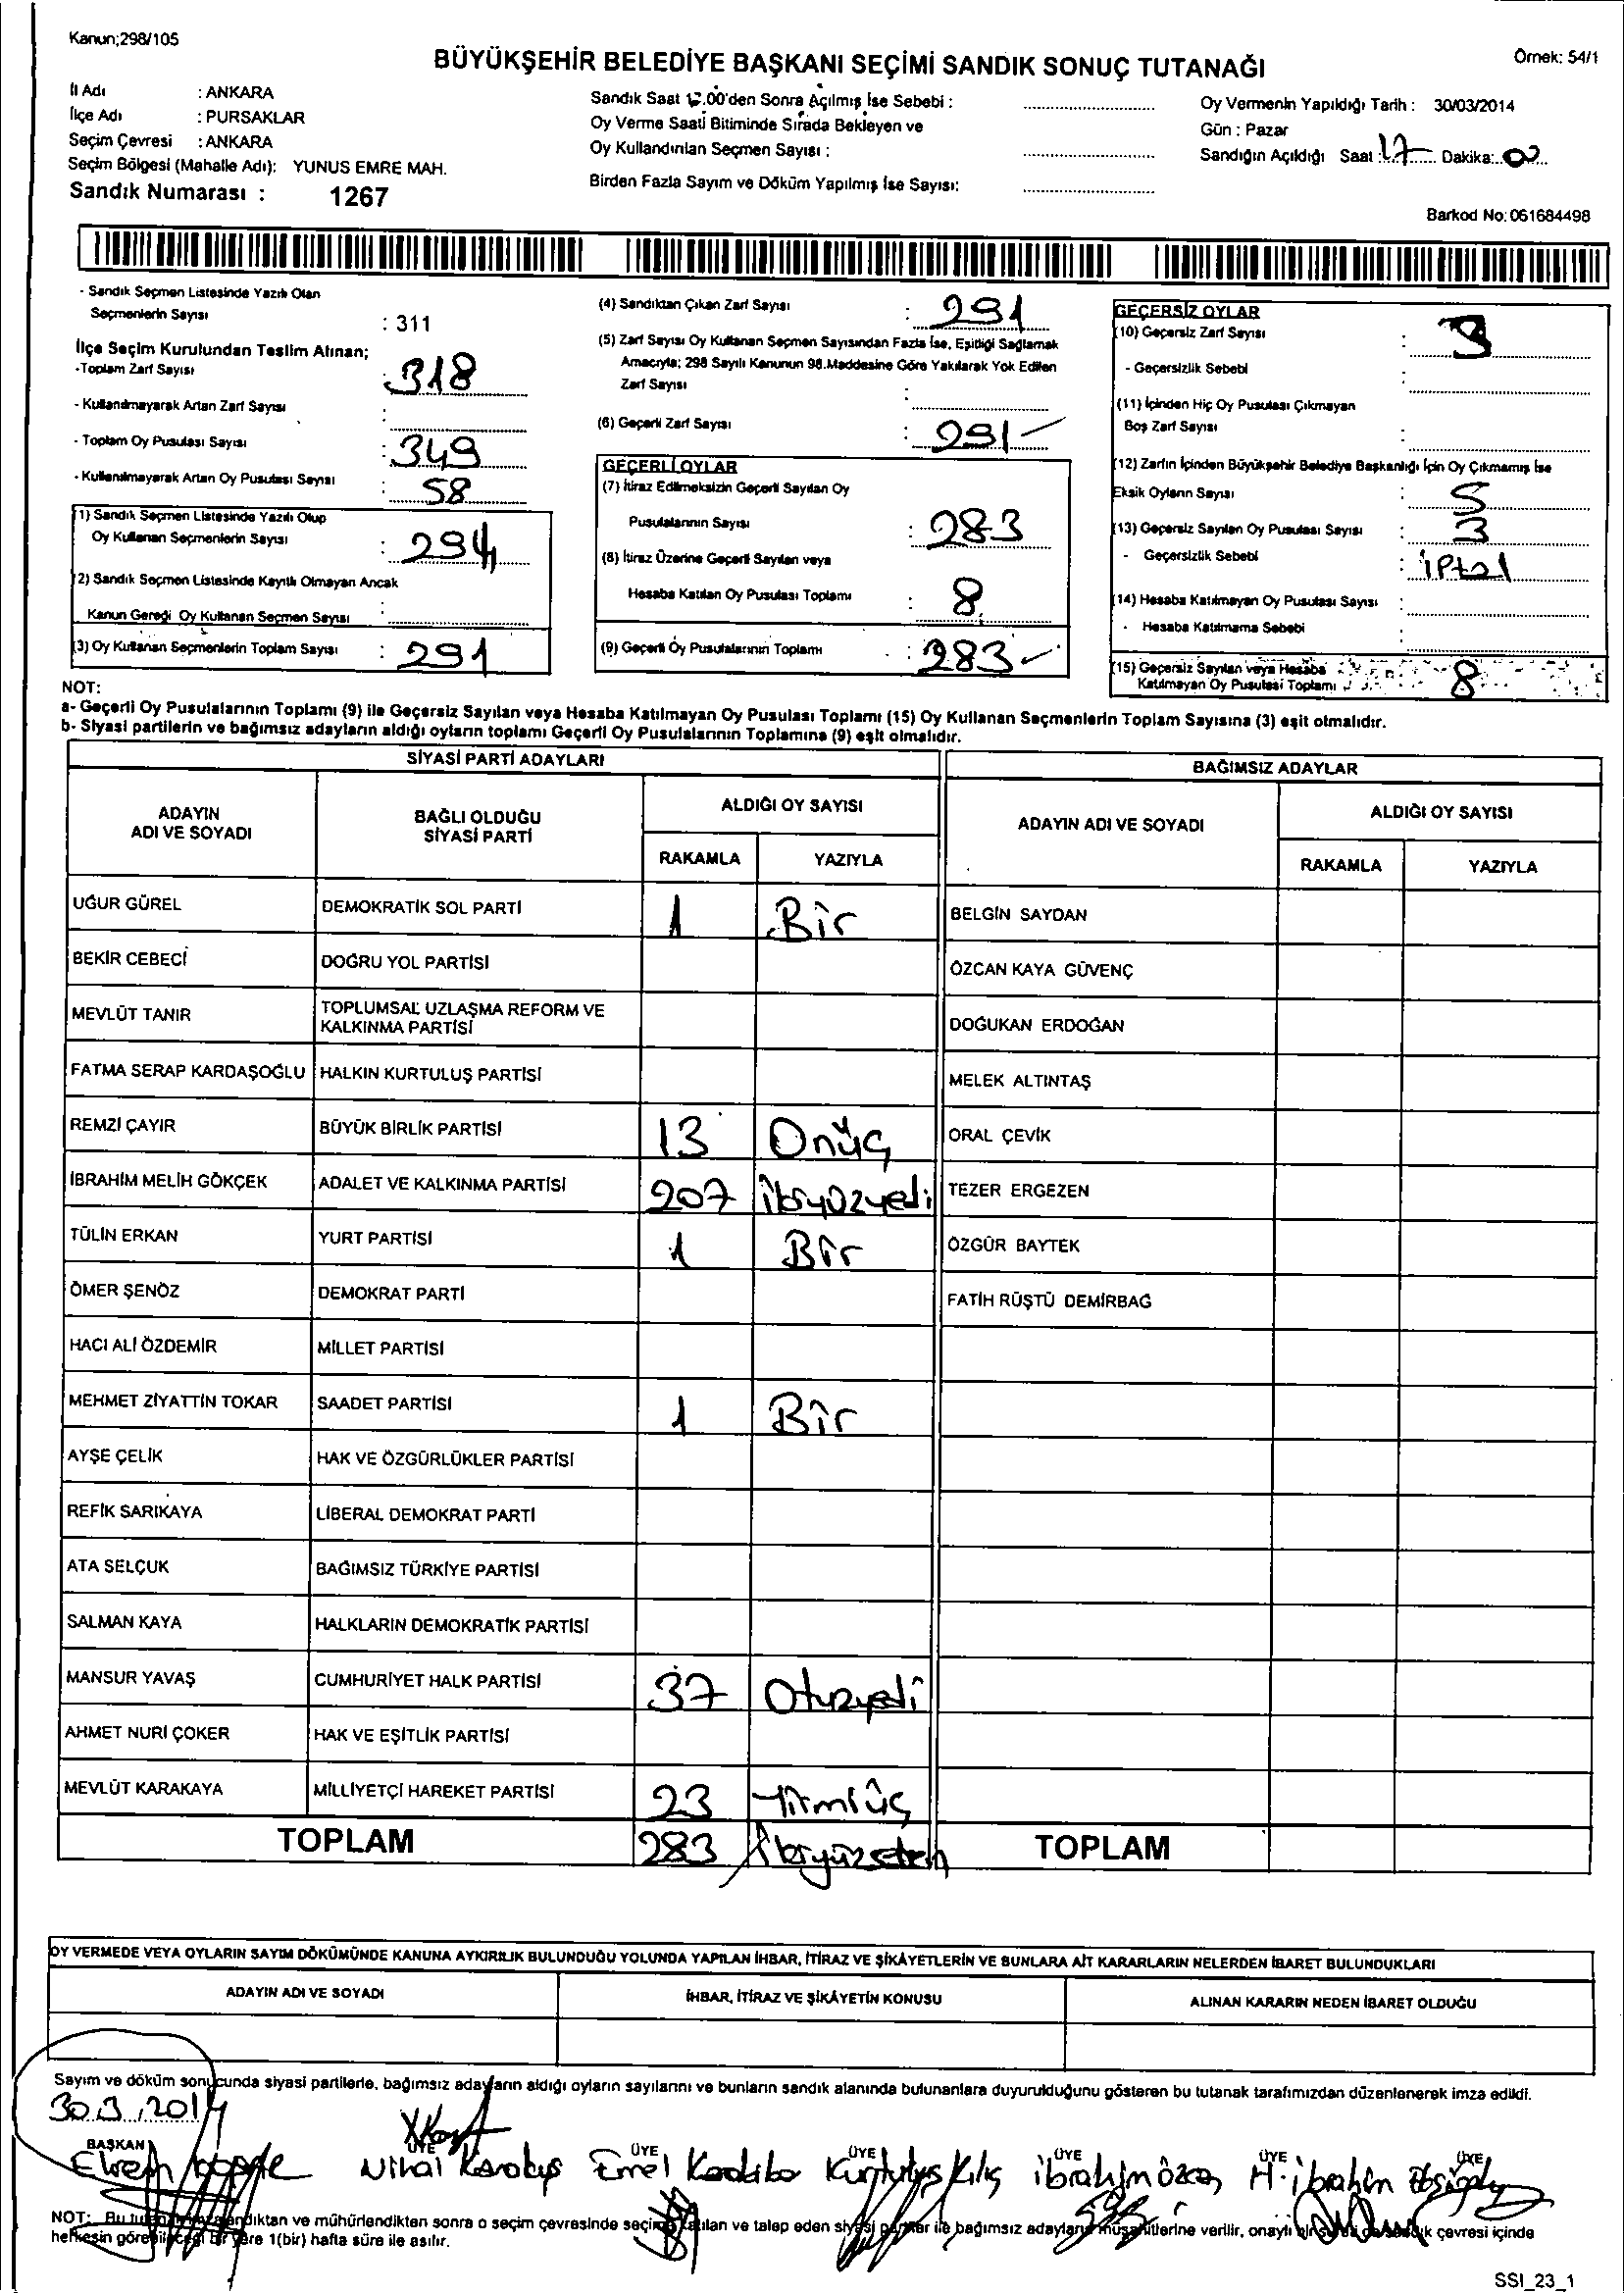 Kanun;298/105
Örnek: 54/1
BÜYÜKŞEHİR BELEDİYE BAŞKANI SEÇİMİ SANDIK SONUÇ TUTANAĞI
İl Adı : ANKARA
İlçe Adı : PURSAKLAR
Seçim Çevresi : ANKARA
Seçim Bölgesi (Mahalle Adı): YUNUS EMRE MAH.
Sandık Numarası : 1267
Sandık Saat 17.00'den Sonra Açılmış İse Sebebi :
Oy Verme Saati Bitiminde Sırada Bekleyen ve
Oy Kullandırılan Seçmen Sayısı :
Birden Fazla Sayım ve Döküm Yapılmış İse Sayısı:
Oy Vermenin Yapıldığı Tarih : 30/03/2014
Gün : Pazar
Sandığın Açıldığı Saat : 17 Dakika: 00
Barkod No: 061684498
- Sandık Seçmen Listesinde Yazılı Olan
Seçmenlerin Sayısı : 311
İlçe Seçim Kurulundan Teslim Alınan;
-Toplam Zarf Sayısı : 318
- Kullanılmayarak Artan Zarf Sayısı :
- Toplam Oy Pusulası Sayısı : 349
- Kullanılmayarak Artan Oy Pusulası Sayısı : 58
(1) Sandık Seçmen Listesinde Yazılı Olup
Oy Kullanan Seçmenlerin Sayısı : 294
(2) Sandık Seçmen Listesinde Kayıtlı Olmayan Ancak
Kanun Gereği Oy Kullanan Seçmen Sayısı :
(3) Oy Kullanan Seçmenlerin Toplam Sayısı : 291
(4) Sandıktan Çıkan Zarf Sayısı : 291
(5) Zarf Sayısı Oy Kullanan Seçmen Sayısından Fazla İse, Eşitliği Sağlamak
Amacıyla; 298 Sayılı Kanunun 98.Maddesine Göre Yakılarak Yok Edilen
Zarf Sayısı :
(6) Geçerli Zarf Sayısı : 291
GEÇERLİ OYLAR
(7) İtiraz Edilmeksizin Geçerli Sayılan Oy
Pusulalarının Sayısı : 283
(8) İtiraz Üzerine Geçerli Sayılan veya
Hesaba Katılan Oy Pusulası Toplamı : 8
(9) Geçerli Oy Pusulalarının Toplamı : 283
GEÇERSİZ OYLAR
(10) Geçersiz Zarf Sayısı :
- Geçersizlik Sebebi :
(11) İçinden Hiç Oy Pusulası Çıkmayan
Boş Zarf Sayısı :
(12) Zarfın İçinden Büyükşehir Belediye Başkanlığı İçin Oy Çıkmamış İse
Eksik Oyların Sayısı : 5
(13) Geçersiz Sayılan Oy Pusulası Sayısı : 3
- Geçersizlik Sebebi : iptal
(14) Hesaba Katılmayan Oy Pusulası Sayısı :
- Hesaba Katılmama Sebebi :
(15) Geçersiz Sayılan veya Hesaba
Katılmayan Oy Pusulası Toplamı : 8
NOT:
a- Geçerli Oy Pusulalarının Toplamı (9) ile Geçersiz Sayılan veya Hesaba Katılmayan Oy Pusulası Toplamı (15) Oy Kullanan Seçmenlerin Toplam Sayısına (3) eşit olmalıdır.
b- Siyasi partilerin ve bağımsız adayların aldığı oyların toplamı Geçerli Oy Pusulalarının Toplamına (9) eşit olmalıdır.
SİYASİ PARTİ ADAYLARI
BAĞIMSIZ ADAYLAR
ADAYIN ADI VE SOYADI
BAĞLI OLDUĞU SİYASİ PARTİ
ALDIĞI OY SAYISI
RAKAMLA YAZIYLA
ADAYIN ADI VE SOYADI
ALDIĞI OY SAYISI
RAKAMLA YAZIYLA
UĞUR GÜREL DEMOKRATİK SOL PARTİ 1 Bir BELGİN SAYDAN
BEKİR CEBECİ DOĞRU YOL PARTİSİ ÖZCAN KAYA GÜVENÇ
MEVLÜT TANIR TOPLUMSAL UZLAŞMA REFORM VE KALKINMA PARTİSİ DOĞUKAN ERDOĞAN
FATMA SERAP KARDAŞOĞLU HALKIN KURTULUŞ PARTİSİ MELEK ALTINTAŞ
REMZİ ÇAYIR BÜYÜK BİRLİK PARTİSİ 13 Onüç ORAL ÇEVİK
İBRAHİM MELİH GÖKÇEK ADALET VE KALKINMA PARTİSİ 207 ikiyüzyedi TEZER ERGEZEN
TÜLİN ERKAN YURT PARTİSİ 1 Bir ÖZGÜR BAYTEK
ÖMER ŞENÖZ DEMOKRAT PARTİ FATİH RÜŞTÜ DEMİRBAĞ
HACI ALİ ÖZDEMİR MİLLET PARTİSİ
MEHMET ZİYATTİN TOKAR SAADET PARTİSİ 1 Bir
AYŞE ÇELİK HAK VE ÖZGÜRLÜKLER PARTİSİ
REFİK SARIKAYA LİBERAL DEMOKRAT PARTİ
ATA SELÇUK BAĞIMSIZ TÜRKİYE PARTİSİ
SALMAN KAYA HALKLARIN DEMOKRATİK PARTİSİ
MANSUR YAVAŞ CUMHURİYET HALK PARTİSİ 37 Otuzyedi
AHMET NURİ ÇOKER HAK VE EŞİTLİK PARTİSİ
MEVLÜT KARAKAYA MİLLİYETÇİ HAREKET PARTİSİ 23 Yirmiüç
TOPLAM 283 TOPLAM
OY VERMEDE VEYA OYLARIN SAYIM DÖKÜMÜNDE KANUNA AYKIRILIK BULUNDUĞU YOLUNDA YAPILAN İHBAR, İTİRAZ VE ŞİKÂYETLERİN VE BUNLARA AİT KARARLARIN NELERDEN İBARET BULUNDUKLARI
ADAYIN ADI VE SOYADI İHBAR, İTİRAZ VE ŞİKÂYETİN KONUSU ALINAN KARARIN NEDEN İBARET OLDUĞU
Sayım ve döküm sonucunda siyasi partilerle, bağımsız adayların aldığı oyların sayılarını ve bunların sandık alanında bulunanlara duyurulduğunu gösteren bu tutanak tarafımızdan düzenlenerek imza edildi.
30.3.2014
BAŞKAN ÜYE ÜYE ÜYE ÜYE ÜYE ÜYE
Nihal Emel Kurtuluş Kılıç ibrahim özcan H. ibrahim
NOT: Bu tutanak imzalandıktan ve mühürlendikten sonra o seçim çevresinde seçime katılan ve talep eden siyasi partiler ile bağımsız adayların müşahitlerine verilir, onaylı bir sureti de sandık çevresi içinde
herkesin görebileceği bir yere 1(bir) hafta süre ile asılır.
SSI_23_1